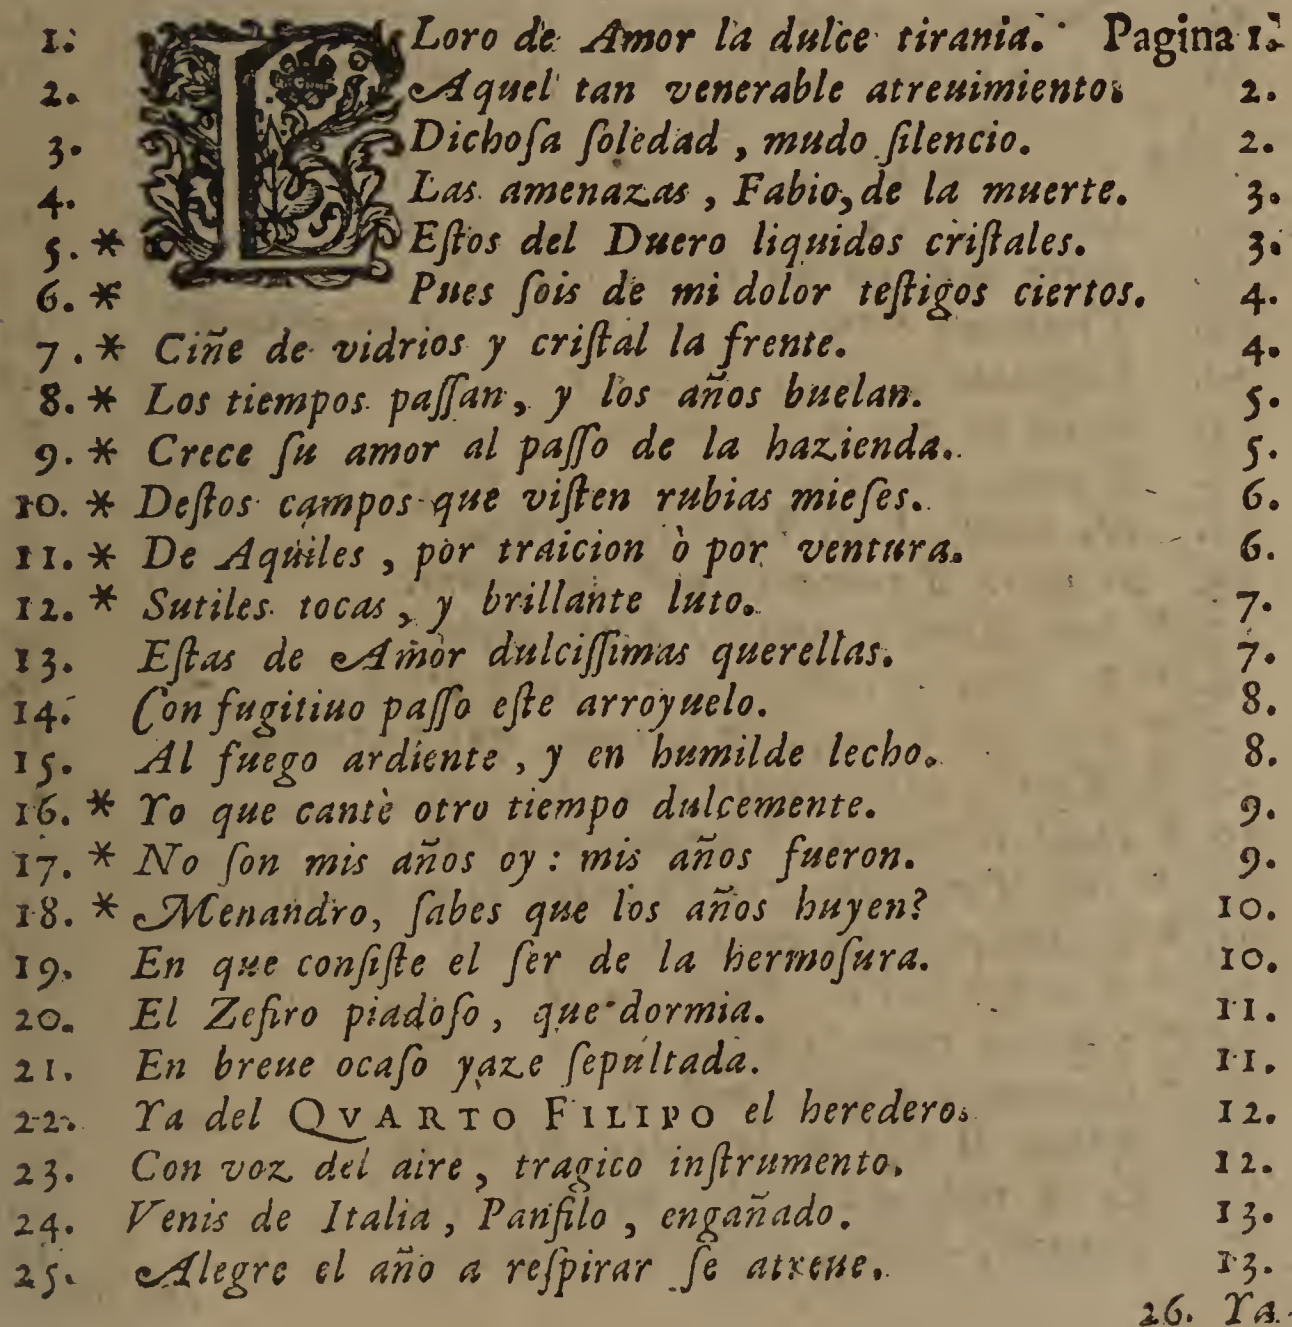 1. LLoro de Amor la dulce tirania. Pagina 1.
2. Aquel tan venerable atreuimiento. 2.
3. Dichoſa ſoledad, mudo ſilencio. 2.
4. Las amenazas, Fabio, de la muerte. 3.
5. * Eſtos del Duero liquidos criſtales. 3.
6. * Pues ſois de mi dolor teſtigos ciertos. 4.
7. * Ciñe de vidrios y criſtal la frente. 4.
8. * Los tiempos paſſan, y los años buelan. 5.
9. * Crece ſu amor al paſſo de la hazienda. 5.
10. * Deſtos campos que viſten rubias mieſes. 6.
11. * De Aquiles, por traicion ò por ventura. 6.
12. * Sutiles tocas, y brillante luto. 7.
13. Eſtas de Amor dulciſſimas querellas. 7.
14. Con fugitiuo paſſo eſte arroyuelo. 8.
15. Al fuego ardiente, y en humilde lecho. 8.
16. * Yo que cantè otro tiempo dulcemente. 9.
17. * No ſon mis años oy: mis años fueron. 9.
18. * Menandro, ſabes que los años huyen? 10.
19. En que conſiſte el ſer de la hermoſura. 10.
20. El Zefiro piadoſo, que dormia. 11.
21. En breue ocaſo yaze ſepultada. 11.
22. Ya del QVARTO FILIPO el heredero. 12.
23. Con voz del aire, tragico inſtrumento. 12.
24. Venis de Italia, Panfilo, engañado. 13.
25. Alegre el año a reſpirar ſe atreue. 13.
26. Ya